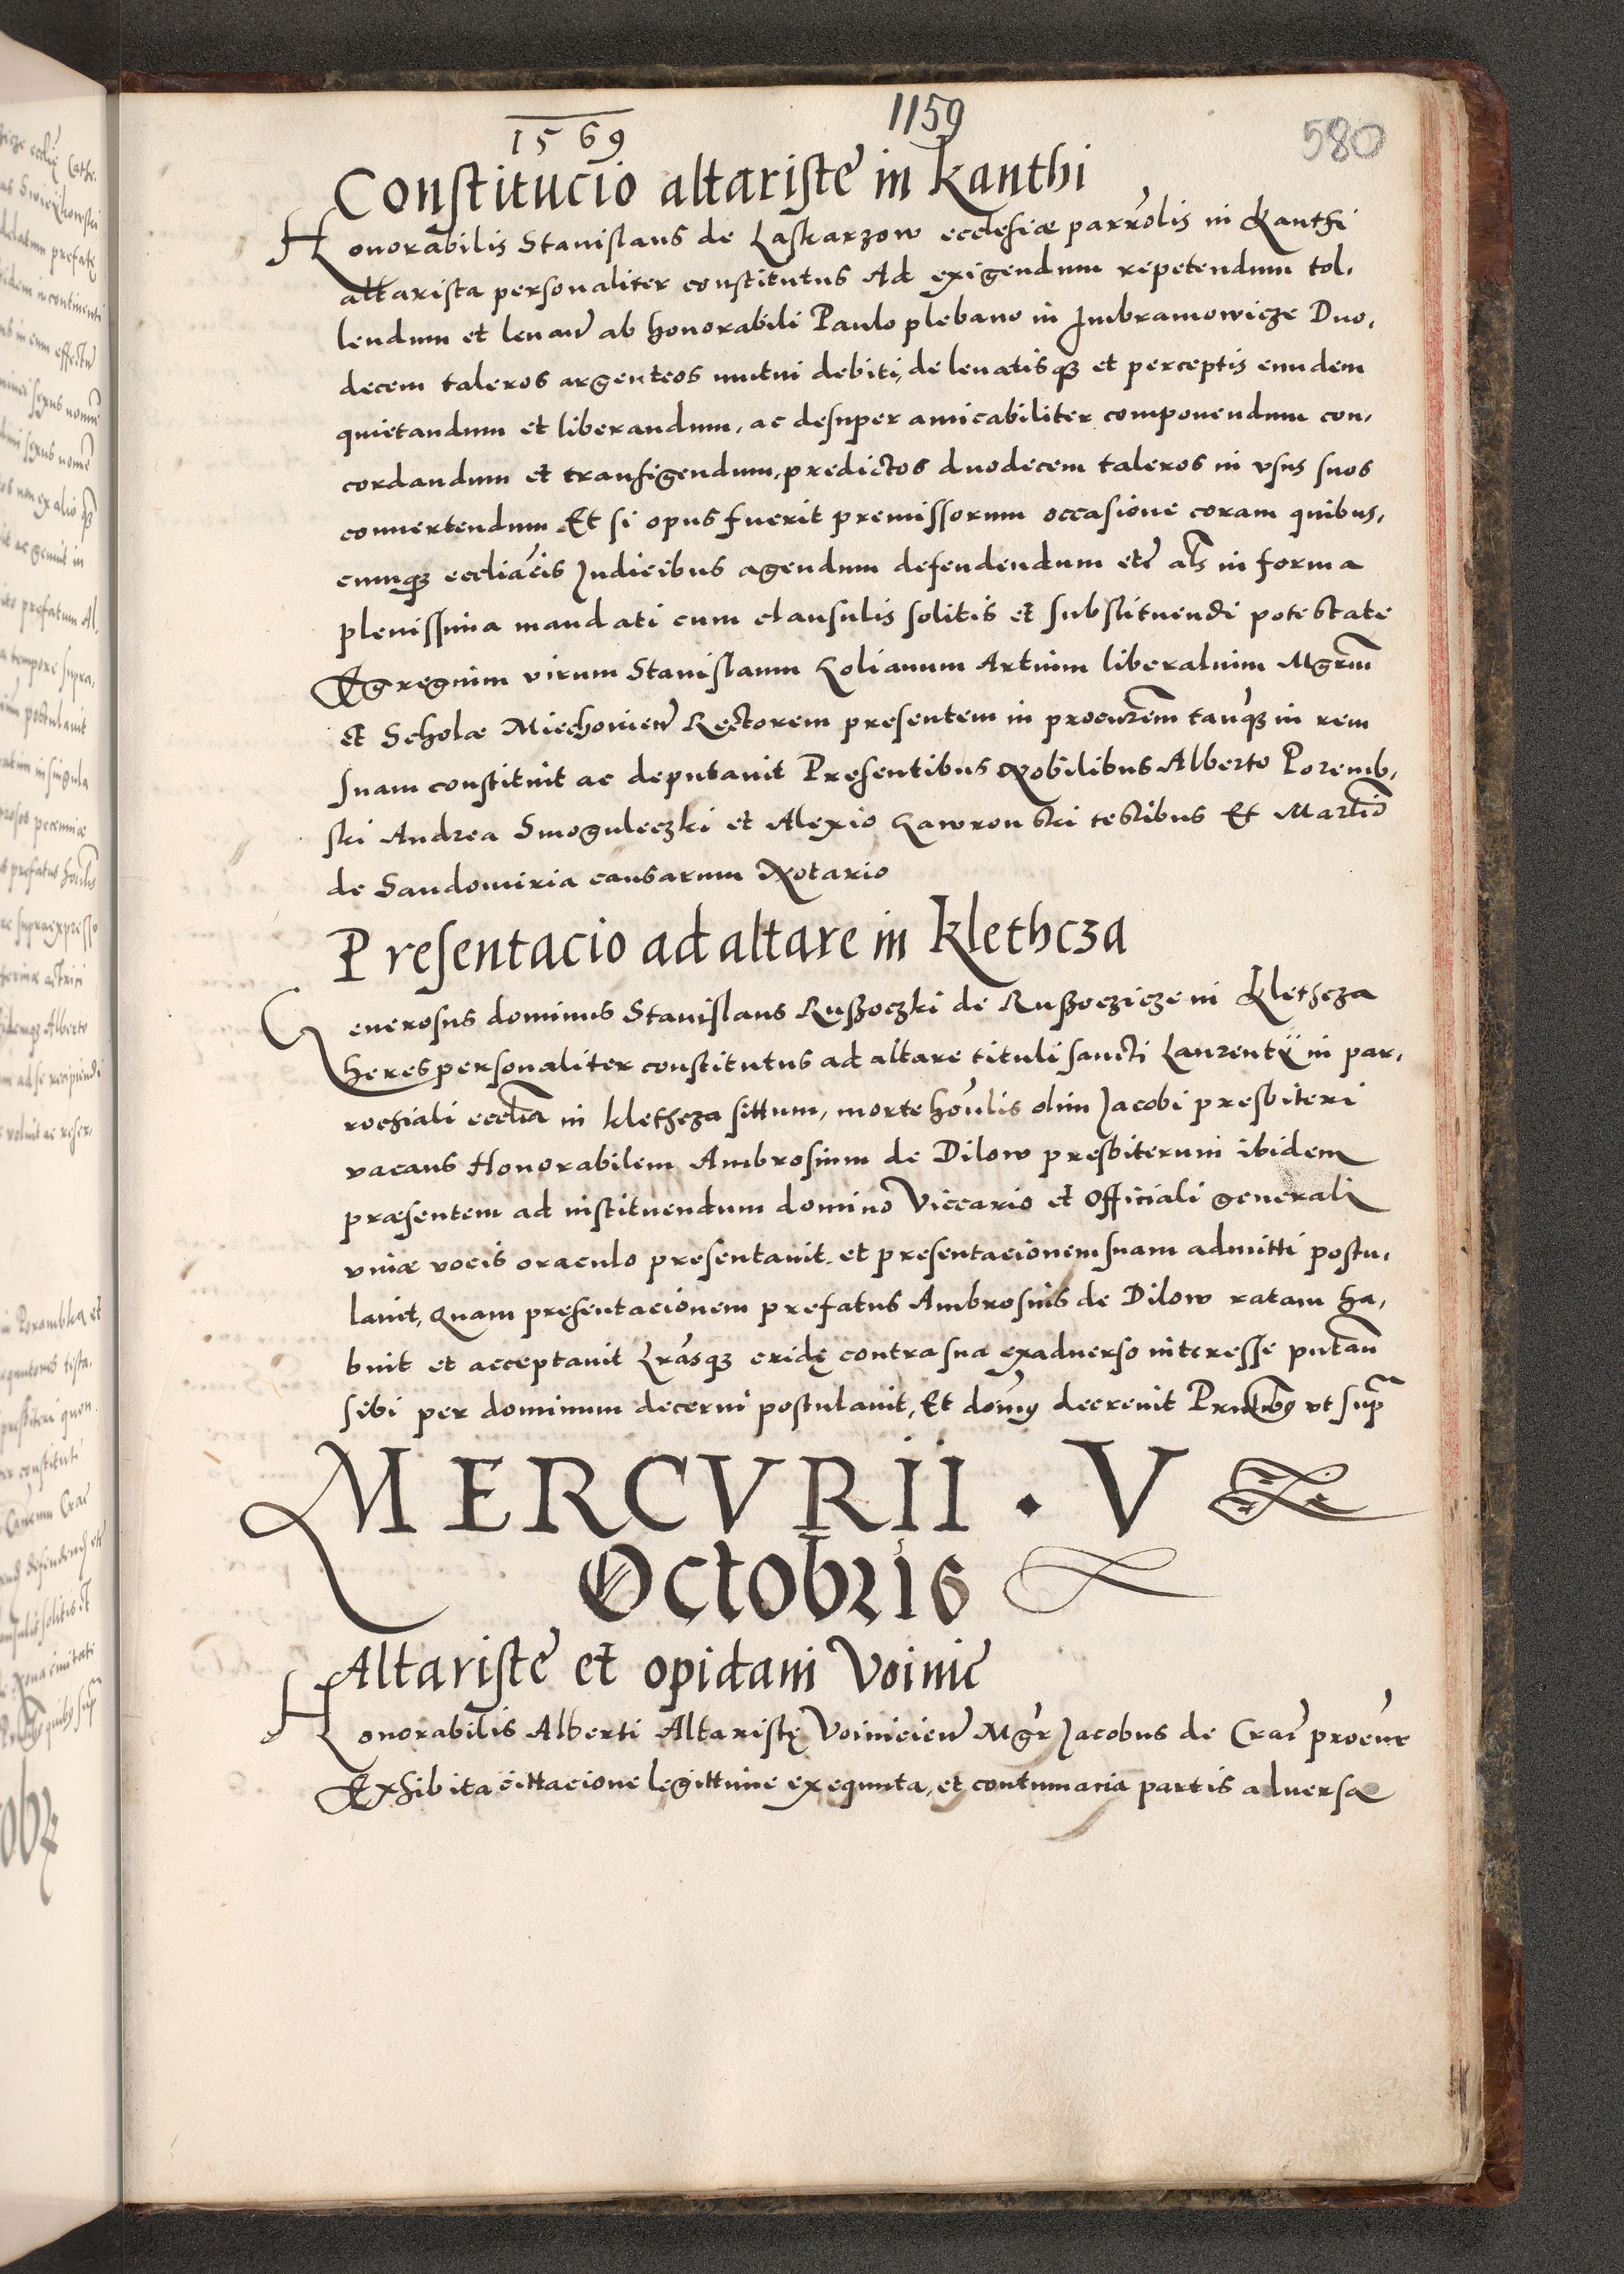 1569
1159
580
Constitucio altariste in Kanthi
Honorabilis Stanislaus de Laskarzow ecclesiæ parrolis in Kanthi
altarista personaliter constitutus Ad exigendum repetendum tol,
lendum et levan ab honorabili Paulo plebano in Imbramowicze Duo,
decem taleros argenteos mutui debiti, de levatisq3 et perceptis eundem
quietandum et liberandum, ac desuper amicabiliter componendum con,
cordandum et transigendum, predictos duodecem taleros in usus suos
convertendum Et si opus fuerit premissorum occasione coram quibus,
cumq3 eccliacis Judicibus agendum defendendum etc als in forma
plenissima mandati cum clausulis solitis et substituendi potestate
Egregium virum Stanislaum Golianum Artium liberalium Mgrm
et Scholæ Miechovien Rectorem presentem in procurem tanq3 in rem
suam constituit ac deputavit Presentibus Nobilibus Alberto Poremb,
ski Andrea Smoguleczki et Alexio Gawronski testibus Et Martio
de Sandomiria causarum Notario
Presentacio ad altare in Klethcza
Generosus dominus Stanislaus Rußoczki de Rußoczicze in Klethcza
heres personaliter constitutus ad altare tituli sancti Laurentii in par,
rochiali ecclia in Klethcza sittum, morte honlis olim Jacobi presbiteri
vacans Honorabilem Ambrosium de Dilow presbiterum ibidem
præsentem ad instituendum domino Viccario et Officiali generali
vivæ vocis oraculo presentavit, et presentacionem suam admitti postu,
lavit, Quam presentacionem prefatus Ambrosius de Dilow ratam ha,
buit et acceptavit Lrasq3 cridę contra sua exadverso interesse putan
sibi per dominum decerni postulavit, Et doms decrevit Prntibus ut sup
MERCVRII . V
Octobris
Altariste et opidani Voinic
Honorabilis Alberti Altaristę Voinicien Mgr Jacobus de Crac procur
Exhibita cittacione legittime exequuta, et contumacia partis adversæ